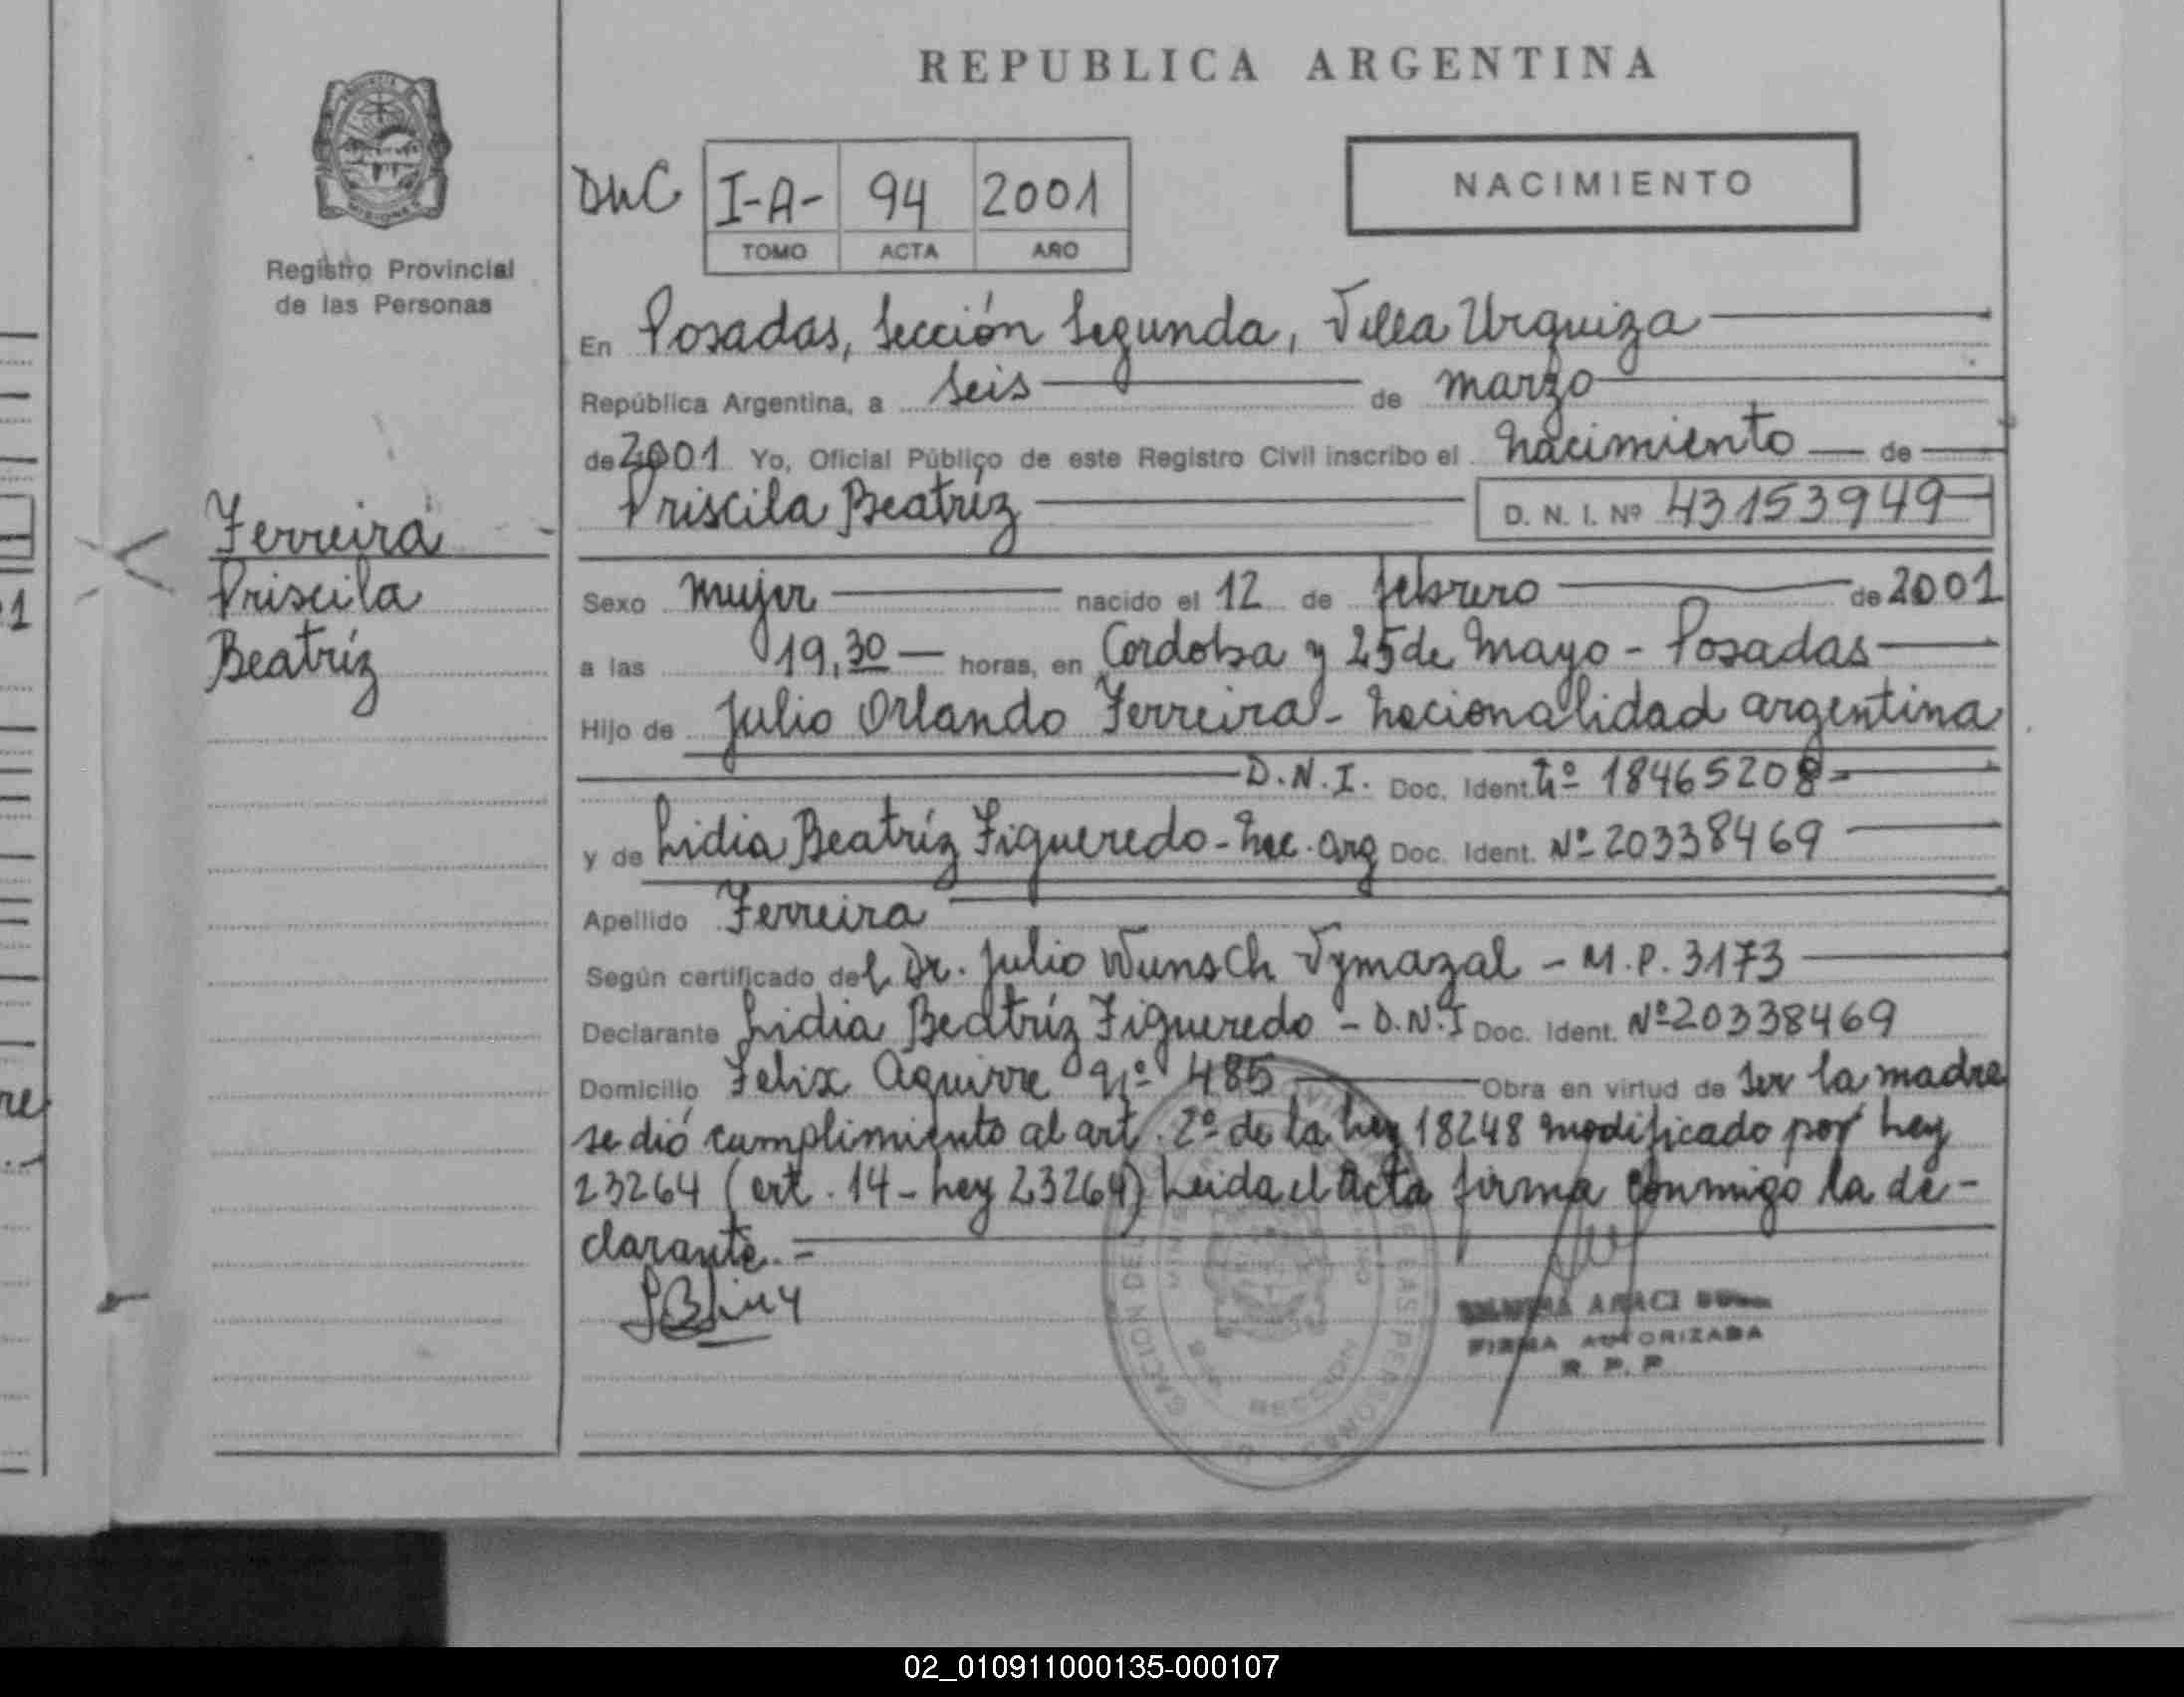 REPUBLICA ARGENTINA
DNC I-A- 94 2001
TOMO ACTA AÑO
NACIMIENTO
MISIONES
Registro Provincial
de las Personas
Ferreira
Priscila
Beatríz
En Posadas, Sección Segunda, Villa Urquiza
República Argentina, a Seis de marzo
de 2001 Yo, Oficial Público de este Registro Civil inscribo el nacimiento de
Priscila Beatríz D. N. I. Nº 43153949
Sexo mujer nacido el 12 de febrero de 2001
a las 19,30 horas, en Cordoba y 25 de Mayo - Posadas
Hijo de Julio Orlando Ferreira - nacionalidad argentina
D.N.I. Doc. Ident. Nº 18465208
y de Lidia Beatríz Figueredo - nac. arg Doc. Ident. Nº 20338469
Apellido Ferreira
Según certificado del Dr. Julio Wunsch Vymazal - M.P. 3173
Declarante Lidia Beatríz Figueredo - D.N.I Doc. Ident. Nº 20338469
Domicilio Felix Aguirre Nº 485 Obra en virtud de ser la madre
se dió cumplimiento al art. 2º de la Ley 18248 modificado por Ley
23264 (art. 14 - Ley 23264) Leida el Acta firma conmigo la de-
clarante. -
ARACI
FIRMA AUTORIZADA
R. P. P.
SECCION
02_010911000135-000107